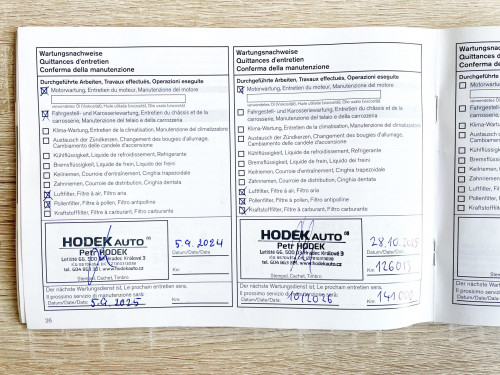 Wartungsnachweise
Quittances d'entretien
Conferma della manutenzione
Durchgeführte Arbeiten, Travaux effectués, Operazioni eseguite
Motorwartung, Entretien du moteur, Manutenzione del motore
verwendetes Öl (Viskosität), Huile utilisée (viscosité), Olio usato (viscosità)
Fahrgestell- und Karosseriewartung, Entretien du châssis et de la
carrosserie, Manutenzione del telaio e della carrozzeria
Klima-Wartung, Entretien de la climatisation, Manutenzione del climatizzatore
Austausch der Zündkerzen, Changement des bougies d'allumage,
Cambiamento delle candele d'accensione
Kühlflüssigkeit, Liquide de refroidissement, Refrigerante
Bremsflüssigkeit, Liquide de frein, Liquido dei freni
Keilriemen, Courroie d'entraînement, Cinghia trapezoidale
Zahnriemen, Courroie de distribution, Cinghia dentata
Luftfilter, Filtre à air, Filtro aria
Pollenfilter, Filtre à pollen, Filtro antipolline
Kraftstofffilter, Filtre à carburant, Filtro carburante
HODEKAUTO
Petr HODEK
Letiště 66, 500 03 Hradec Králové 3
www.hodekauto.cz
5.9.2024
Datum/Date/Data
Km
Stempel, Cachet, Timbro
Der nächste Wartungsdienst ist, Le prochain entretien sera,
Il prossimo servizio di manutenzione sarà:
Datum/Date/Data: 5.9.2025
Km:
36
Wartungsnachweise
Quittances d'entretien
Conferma della manutenzione
Durchgeführte Arbeiten, Travaux effectués, Operazioni eseguite
Motorwartung, Entretien du moteur, Manutenzione del motore
verwendetes Öl (Viskosität), Huile utilisée (viscosité), Olio usato (viscosità)
Fahrgestell- und Karosseriewartung, Entretien du châssis et de la
carrosserie, Manutenzione del telaio e della carrozzeria
Klima-Wartung, Entretien de la climatisation, Manutenzione del climatizzatore
Austausch der Zündkerzen, Changement des bougies d'allumage,
Cambiamento delle candele d'accensione
Kühlflüssigkeit, Liquide de refroidissement, Refrigerante
Bremsflüssigkeit, Liquide de frein, Liquido dei freni
Keilriemen, Courroie d'entraînement, Cinghia trapezoidale
Zahnriemen, Courroie de distribution, Cinghia dentata
Luftfilter, Filtre à air, Filtro aria
Pollenfilter, Filtre à pollen, Filtro antipolline
Kraftstofffilter, Filtre à carburant, Filtro carburante
HODEKAUTO
Petr HODEK
Letiště 66, 500 03 Hradec Králové 3
www.hodekauto.cz
28.10.2025
Datum/Date/Data
Km 126015
Stempel, Cachet, Timbro
Der nächste Wartungsdienst ist, Le prochain entretien sera,
Il prossimo servizio di manutenzione sarà:
Datum/Date/Data: 10/2026
Km: 141 000